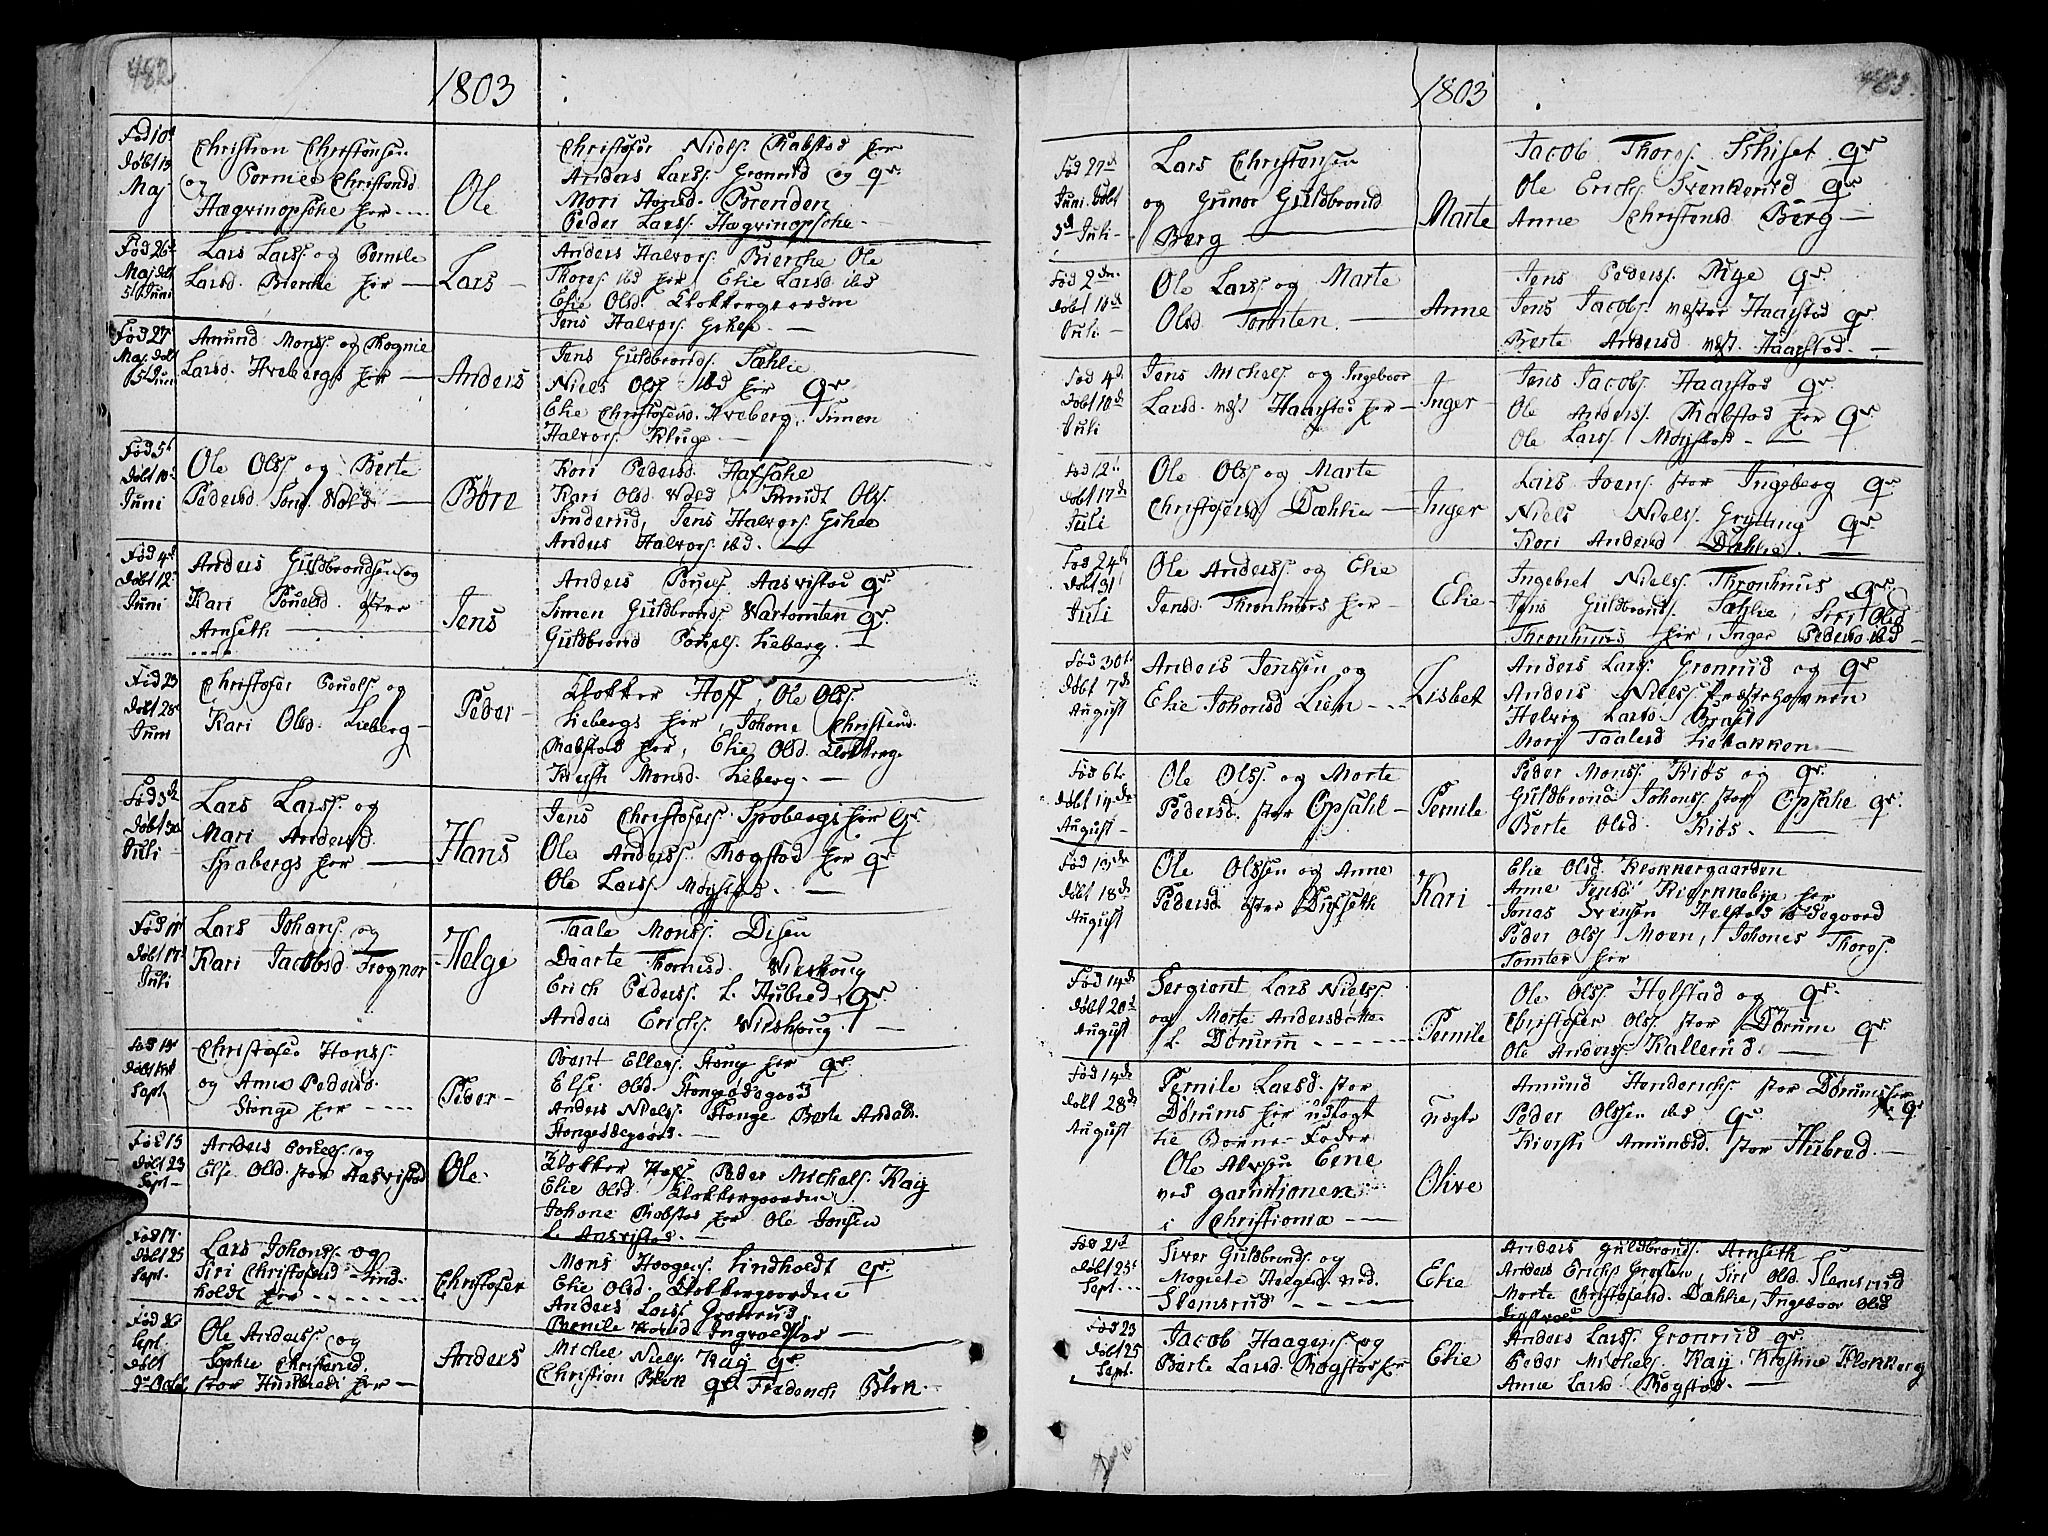 482
1803
Fød 10d
Døbt 19
Maj
Christian Christensen
og Pernile Christensd
Hægvinopsche her
Ole
Christofer Niels. Rabstad her
Anders Lars. Grønrud og qr.
Mari Brenden
Peder Lars. Hægvinopsche
Fød 26d
Maj døbt
5t Juni
Lars Larss. og Pernile
Larsd. Bierche her
Lars
Anders Halvors. Bierche Ole
Thores. ibd her Elie Larsd. ibd
Elie Olsd. Klokkergaarden
Jens Halvors.
Fød 27
Maj døbt
5t Juni
Amund Monss. og Rognie
Larsd. Hvebergs her
Anders
Jens Guldbrands. Sæhlie
Niels Ols. ibd her qr
Elie Christofersd. Hveberg. Simen
Halvors. Kluge
Fød 5t
Døbt 10d
Juni
Ole Olss. og Berte
Pedersd. Wold
Børe
Kari Pedersd.
Kari Olsd. Wold Knudt Ols.
Sinderud, Jens Halvors.
Anders Halvors. ibd.
Fød 4d
Døbt 12
Juni
Anders Guldbrandsen og
Kari Pouelsd. øster
Arnseth
Jens
Anders Pouels. Aasvistad qr
Simen Guldbrands. Wartomten qr.
Guldbrand Pouels. Lieberg.
Fød 23
Døbt 28
Juni
Christofer Pouels. og
Kari Olsd. Lieberg
Peder
Klokker Hoff, Ole Olss.
Liebergs her, Johane Christensd.
Rabstad her, Elie Olsd. Klokkerg.
Kiersti Monsd. Lieberg.
Fød 3d
Døbt 30
Juli
Lars Larss. og
Mari Andersd.
Spabergs her
Hans
Jens Christofers. Spabergs her qr
Ole Anderss. Rogstad her qr
Ole Lars. Møystad.
Fød 11
Døbt 17
Juli
Lars Johans. og
Kari Jacobsd. Frognor
Helge
Taale Monss. Disen
Daarte Thorsd. Wirskoug
Erich Pederss. L. Hubred qr.
Anders Erichs. Wirskoug.
Fød 14
Døbt
Sept.
Christofer Hanss.
og Anne Pedersd.
Stange her
Peder
Brent Ellers. Stang her qr.
Else Olsd. Stangødegaard
Anders Niels. Stange Berte Andersd.
Stangeødegaard.
Fød 15
Døbt 23
Sept.
Anders Pouels. og
Else Olsd. stor Aasvistad
Ole
Klokker Hoff Peder Michels. Kaij
Elie Olsd. Klokkergaarden
Johane Rabstad her Ole Jensen
L. Aasvistad.
Fød 17.
Døbt 25
Sept.
Lars Johanss. og
Siri Christofersd. Lind-
holdt her
Christofer
Mons Haagens. Lindholdt qr.
Elie Olsd. Klokkergaarden
Anders Lars. Grøttrud
Pernile Ingvoldstad
Fød 26
Sept.
døbt
2d Octb.
Ole Anderss. og
Sophie Christensd.
stor Huubred her
Anders
Michel Niels. Kaij qr
Christian Blok qr. Frederich Blok.
483.
1803
Fød 27d
Juni Døbt
3d Juli
Lars Christensen
og Gunor Guldbrandsd
Berg
Marte
Jacob Thoros. Skiset qr
Ole Erichs. Svenkerud qr
Anne Christensd Berg
Fød 2den
døbt 10d
Juli
Ole Larss. og Marte
Olsd. Tomten.
Anne
Jens Pederss. Rije qr.
Jens Jacobs. væster Haarstad qr.
Berte Andersd væst. Haarstad.
Fød 4d
Døbt 10d
Juli
Jens Michels. og Ingeboor
Larsd. væst Haarstad her
Inger
Jens Jacobs. Haarstad qr.
Ole Anderss. Rabstad her qr.
Ole Larss. Møystad.
Fød 12t
døbt 17d
Juli
Ole Olss. og Marte
Christofersd. Dæhlie
Inger
Lars Joens. stor Ingeberg qr.
Niels Niels. Grytting qr.
Kari Andersd Dæhlie.
Fød 24d
døbt 31
Juli
Ole Anderss. og Elie
Jensd. Thronhuus her
Elie
Ingebret Niels. Thronhuus qr.
Jens Guldbrands. Sæhlie, Siri Olsd
Thronhuus her, Inger Pedersd ibd
Fød 30t
Døbt 7d
August
Anders Jenssen og
Elie Johansd Lien
Lisbet
Anders Larss. Grønrud og qr.
Anders Niels. Præstegaarden
Helvig Larsd.
Mari Taalesd Liebakken
Fød 6te
Døbt 14de
August
Ole Olss. og Marte
Pedersd. stor Opsahl
Pernile
Peder Monss. Kiøs og qr.
Guldbrand Johans. stor Opsahl qr.
Berte Olsd. Kiøs.
Fød 13de
Døbt 18d
August
Ole Olssen og Anne
Pedersd. øster Dufseth
Kari
Elie Olsd. Klokkergaarden
Anne Jensd. Kiønnebye her
Jonas Svensen Helstad ødegaard
Peder Olss Moen, Johanes Thoros.
Tomter her
Fød 14de
Døbt 20d
August
Sergiant Lars Nielss.
og Marte Andersdatter
L. Dørum
Pernile
Ole Olss. Helstad og qr.
Christofer Olss. stor Dørum qr.
Ole Anders. Kallerud.
Fød 14de
døbt 28de
August
Pernile Larsd. stor
Dørums her udlagt
til Barne-Fader
Ole Eene
ved garnitionen
i Christiania
uægte
Olive
Amund Henderichs. stor Dørums her qr
Peder Olssen ibd qr
Kiersti Amundsd. stor Hubred.
Fød 21d
Døbt 25t
Sept.
Siver Guldbrands. og
Magrete Haagensd. ned.
Slemsrud
Elie
Anders Guldbrands. Arnseth
Anders Erichs. Grosten, Siri Olsd. Slemsrud
Marte Christofersd. Dæhlie, Ingeboor Olsd
Fød 23
Døbt 25
Sept.
Jacob Haagens. og
Berte Larsd. Rogstad her
Elie
Anders Larss. Grønrud qr.
Peder Michels. Kaij. Kirstine Klokkerg
Anne Larsd. Rogstad.